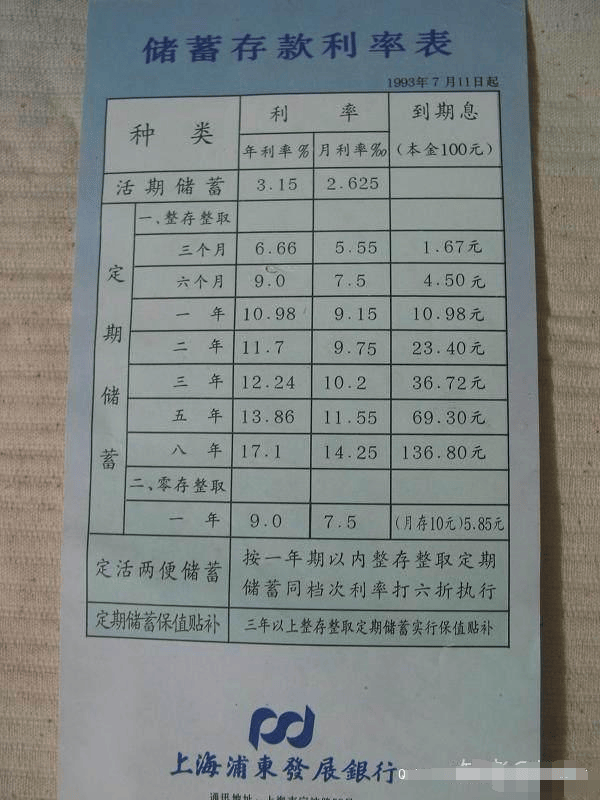 储蓄存款利率表
1993年7月11日起
种 类 利 率 到期息
年利率% 月利率‰ (本金100元)
活期储蓄 3.15 2.625
定期储蓄
一、整存整取
三个月 6.66 5.55 1.67元
六个月 9.0 7.5 4.50元
一 年 10.98 9.15 10.98元
二 年 11.7 9.75 23.40元
三 年 12.24 10.2 36.72元
五 年 13.86 11.55 69.30元
八 年 17.1 14.25 136.80元
二、零存整取
一 年 9.0 7.5 (月存10元)5.85元
定活两便储蓄 按一年期以内整存整取定期
储蓄同档次利率打六折执行
定期储蓄保值贴补 三年以上整存整取定期储蓄实行保值贴补
上海浦東發展銀行
通讯地址：上海市